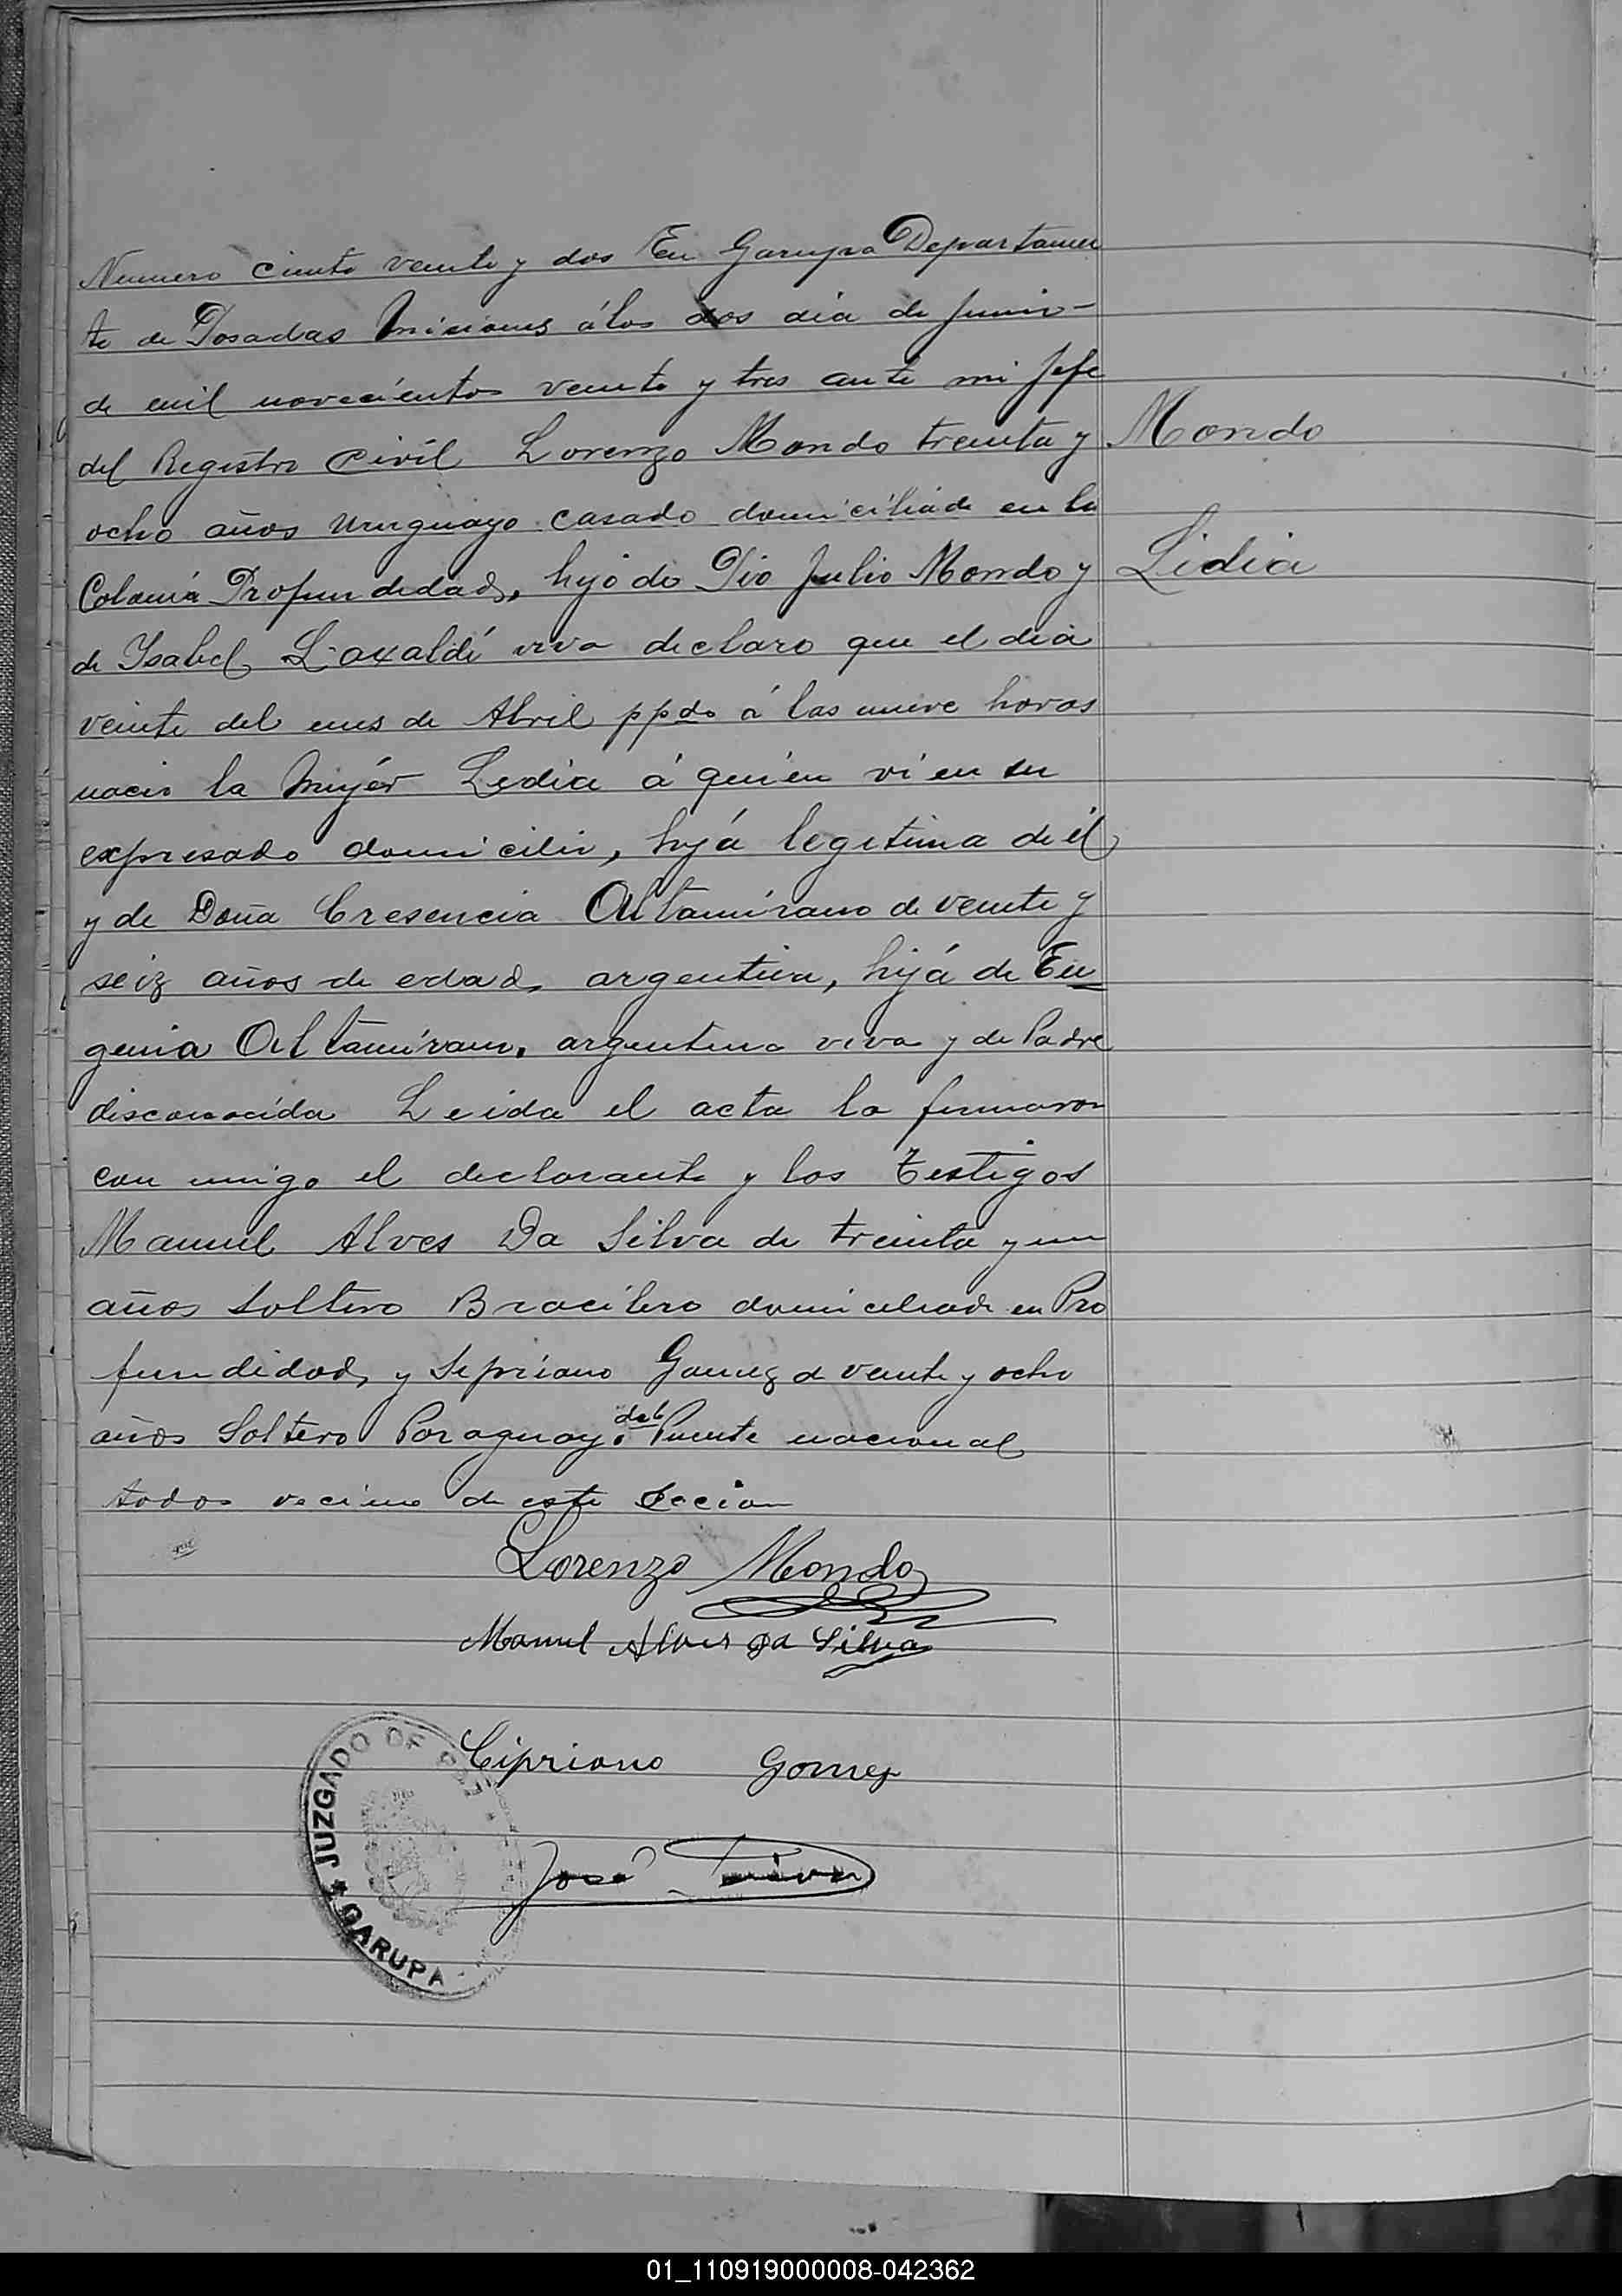 Numero ciento veinte y dos En Garupa Departamen
to de Posadas Misiones á los dos dia de Junio -
de mil novecientos veinte y tres ante mi Jefe
del Registro Civil Lorenzo Mondo treinta y
Mondo
ocho años Uruguayo casado domiciliado en la
Colonia Profundidad, hijo de Pio Julio Mondo y
Lidia
de Isabel Laxaldí viva declaro que el dia
veinte del mes de Abril ppdo á las nueve horas
nacio la Mujér Ledia á quien vi en su
expresado domicilio, hijá legitima de él
y de Doña Cresencia Altamirano de veinte y
seiz años de edad, argentina, hijá de Eu
genia Altamirano, argentina viva y de Padre
disconocida Leida el acta la firmaron
con migo el declarante y los Testigos
Manuel Alves Da Silva de treinta y un
años Soltero Bracilero domiciliado en Pro
fundidad, y Sipriano Gomez de veinte y ocho
años Soltero Paraguayo del Puente nacional
todos vecino de este Seccion
Lorenzo Mondo
Manuel Alves Da Silva
Cipriano Gomez
José
JUZGADO DE PAZ
GARUPA
01_110919000008-042362